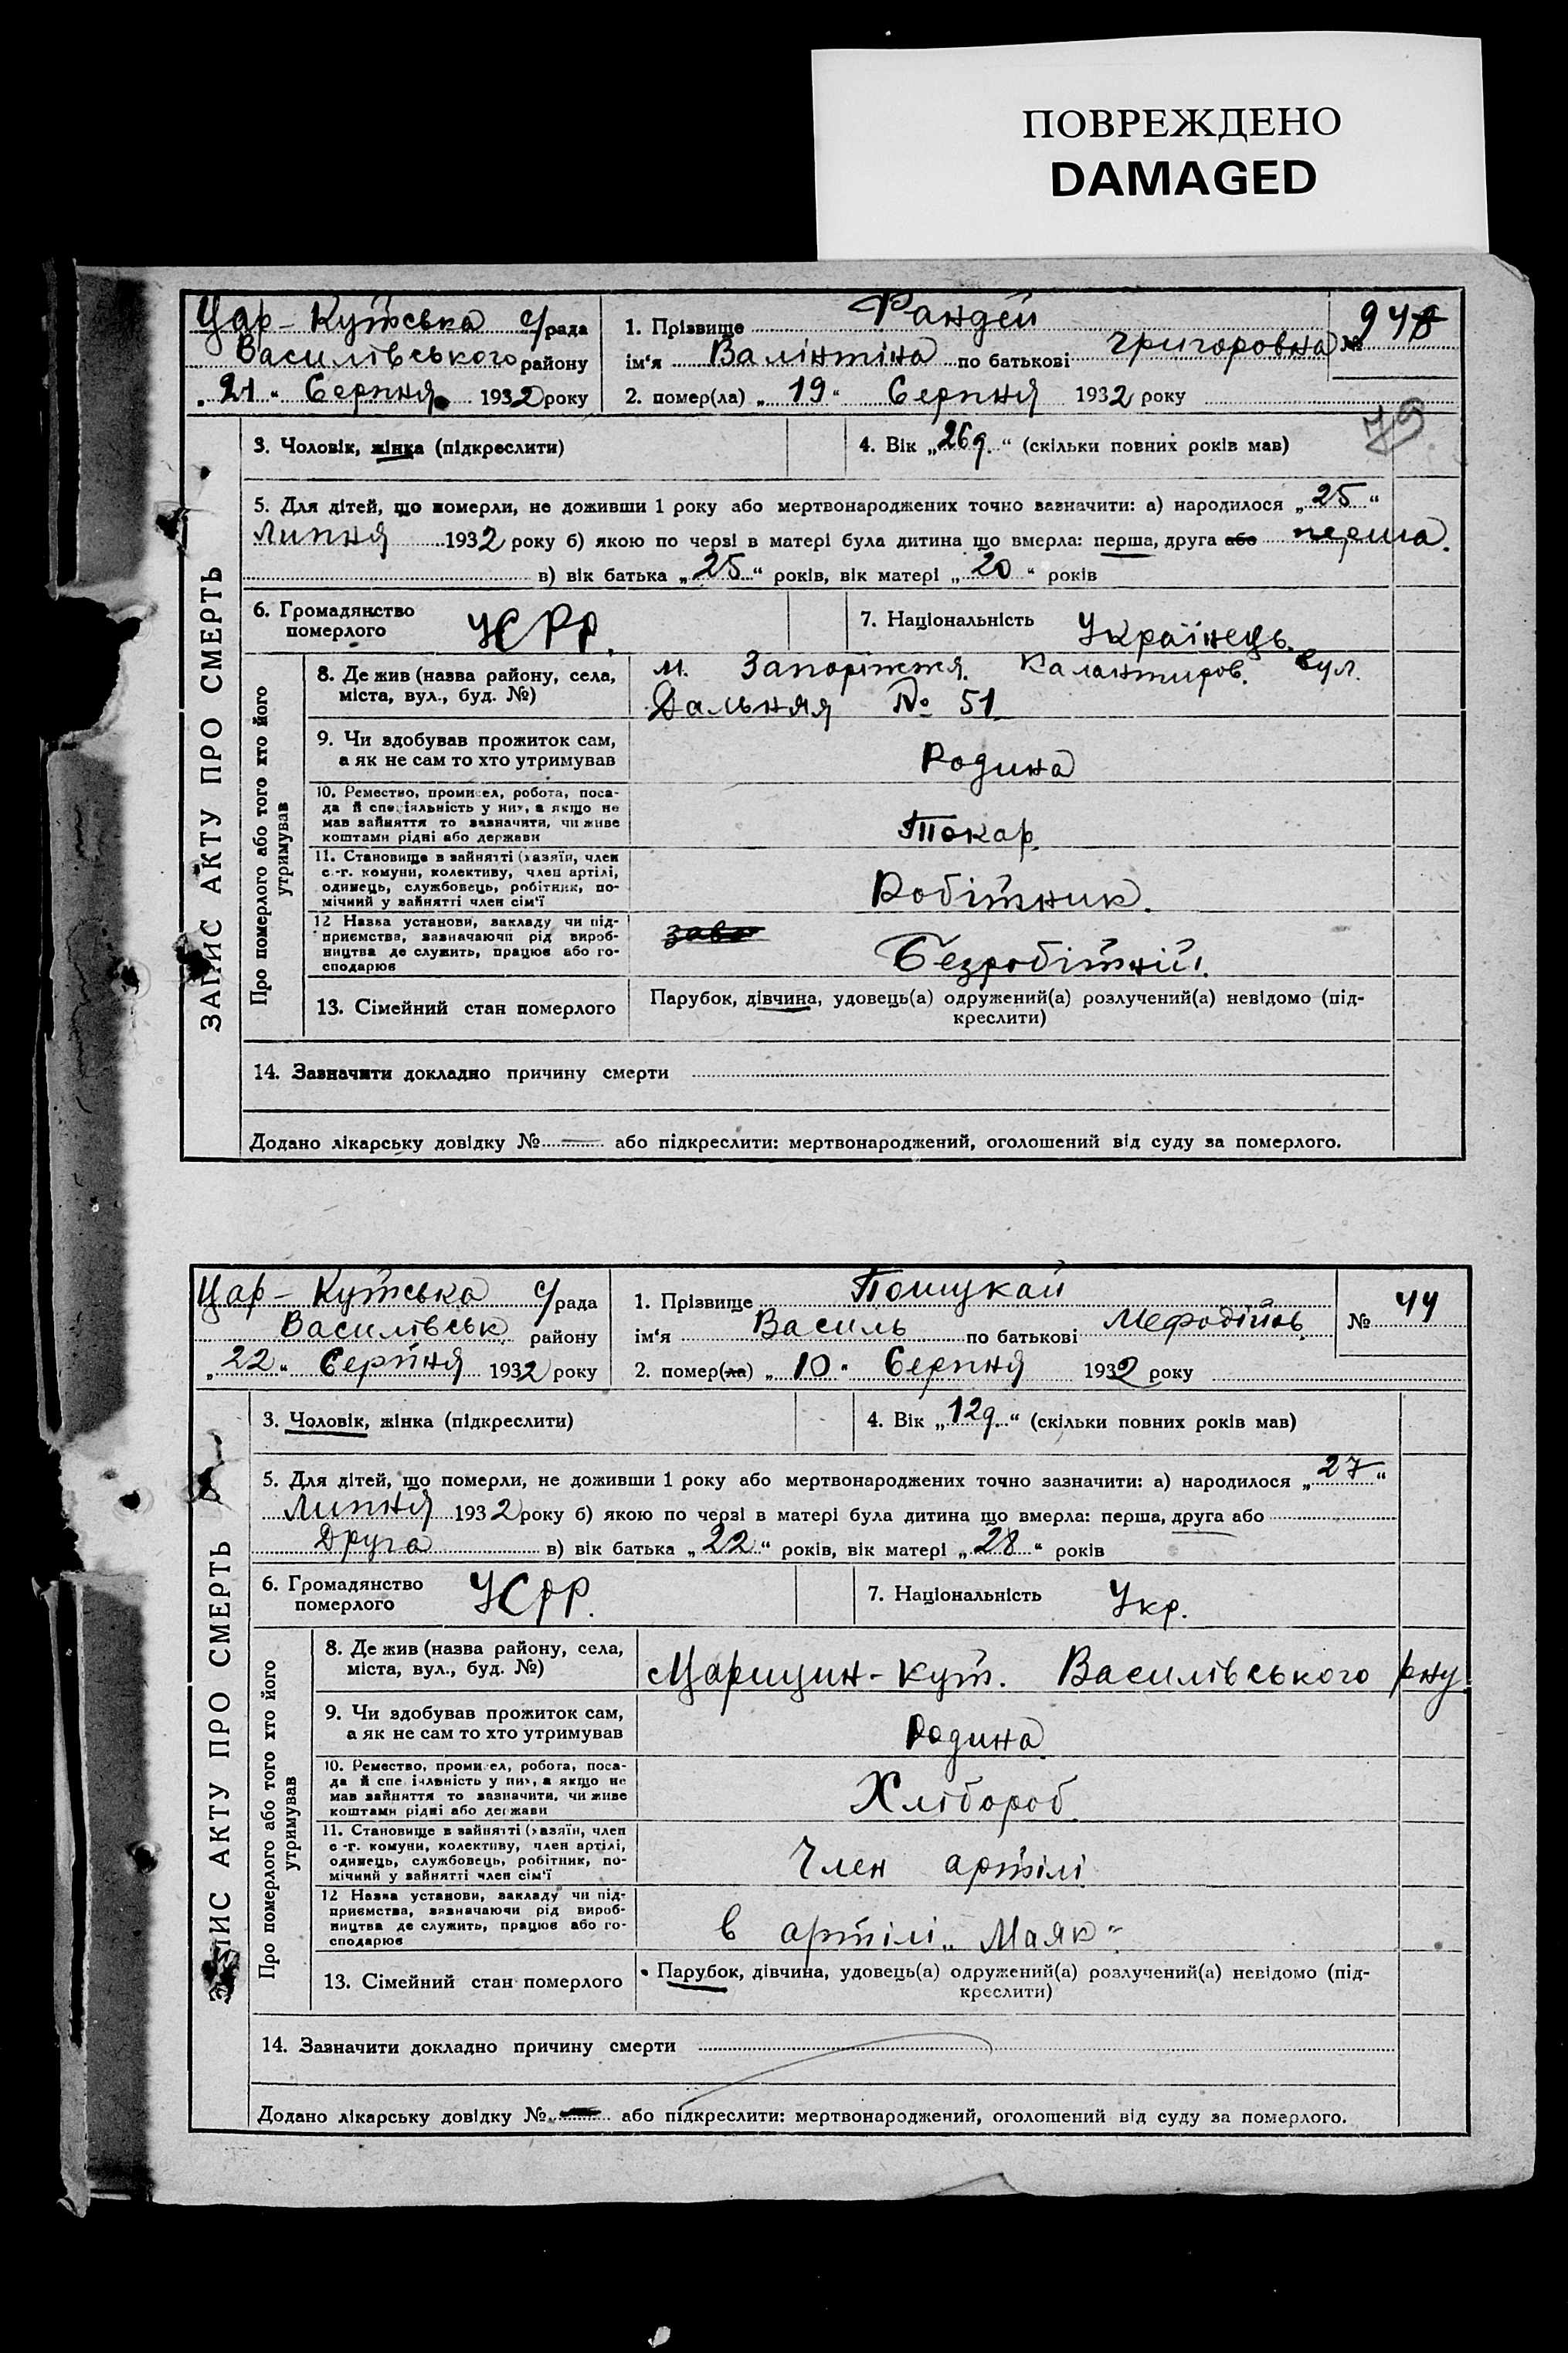 ПОВРЕЖДЕНО
DAMAGED
Цар-Кутська с/рада
Василівського району
„21“ Серпня 1932 року
1. Прізвище Рандей
ім‘я Валінтіна по батькові Григоровна
№ 948
2. помер(ла) „19“ Серпня 1932 року
79
3. Чоловік, жінка (підкреслити)
4. Вік „26д.“ (скільки повних років мав)
5. Для дітей, що померли, не доживши 1 року або мертвонароджених точно зазначити: а) народилося „25“
Липня 1932 року б) якою по черзі в матері була дитина що вмерла: перша, друга або перша.
в) вік батька „25“ років, вік матері „20“ років
6. Громадянство
померлого
УСРР.
7. Національність Українець.
ЗАПИС АКТУ ПРО СМЕРТЬ
Про померлого або того хто його
утримував
8. Де жив (назва району, села,
міста, вул., буд. №)
м. Запоріжжя. Калантиров. вул.
Дальняя № 51
9. Чи здобував прожиток сам,
а як не сам то хто утримував
Родина
10. Ремество, промисел, робота, поса-
да й спеціяльність у них, а якщо не
мав зайняття то зазначити, чи живе
коштами рідні або держави
Токар.
11. Становище в зайнятті (хазяїн, член
с.-г. комуни, колективу, член артілі,
одинець, службовець, робітник, по-
мічний у зайнятті член сім'ї
Робітник.
12 Назва установи, закладу чи під-
приємства, зазначаючи рід вироб-
ництва де служить, працює або го-
сподарює
Безробітній.
13. Сімейний стан померлого
Парубок, дівчина, удовець(а) одружений(а) розлучений(а) невідомо (під-
креслити)
14. Зазначити докладно причину смерти
Додано лікарську довідку № — або підкреслити: мертвонароджений, оголошений від суду за померлого.
Цар-Кутська с/рада
Василівськ району
„22“ Серпня 1932 року
1. Прізвище Пошукай
ім‘я Василь по батькові Мефодійов.
№ 44
2. помер(ла) „10“ Серпня 1932 року
3. Чоловік, жінка (підкреслити)
4. Вік „12д.“ (скільки повних років мав)
5. Для дітей, що померли, не доживши 1 року або мертвонароджених точно зазначити: а) народилося „27“
Липня 1932 року б) якою по черзі в матері була дитина що вмерла: перша, друга або
Друга в) вік батька „22“ років, вік матері „28“ років
6. Громадянство
померлого
УСРР.
7. Національність Укр.
ЗАПИС АКТУ ПРО СМЕРТЬ
Про померлого або того хто його
утримував
8. Де жив (назва району, села,
міста, вул., буд. №)
Царицин-Кут. Василівського р-ну.
9. Чи здобував прожиток сам,
а як не сам то хто утримував
Родина
10. Ремество, промисел, робота, поса-
да й спеціяльність у них, а якщо не
мав зайняття то зазначити, чи живе
коштами рідні або держави
Хлібороб
11. Становище в зайнятті (хазяїн, член
с.-г. комуни, колективу, член артілі,
одинець, службовець, робітник, по-
мічний у зайнятті член сім'ї
Член артілі
12 Назва установи, закладу чи під-
приємства, зазначаючи рід вироб-
ництва де служить, працює або го-
сподарює
в артілі „Маяк“.
13. Сімейний стан померлого
Парубок, дівчина, удовець(а) одружений(а) розлучений(а) невідомо (під-
креслити)
14. Зазначити докладно причину смерти
Додано лікарську довідку № — або підкреслити: мертвонароджений, оголошений від суду за померлого.